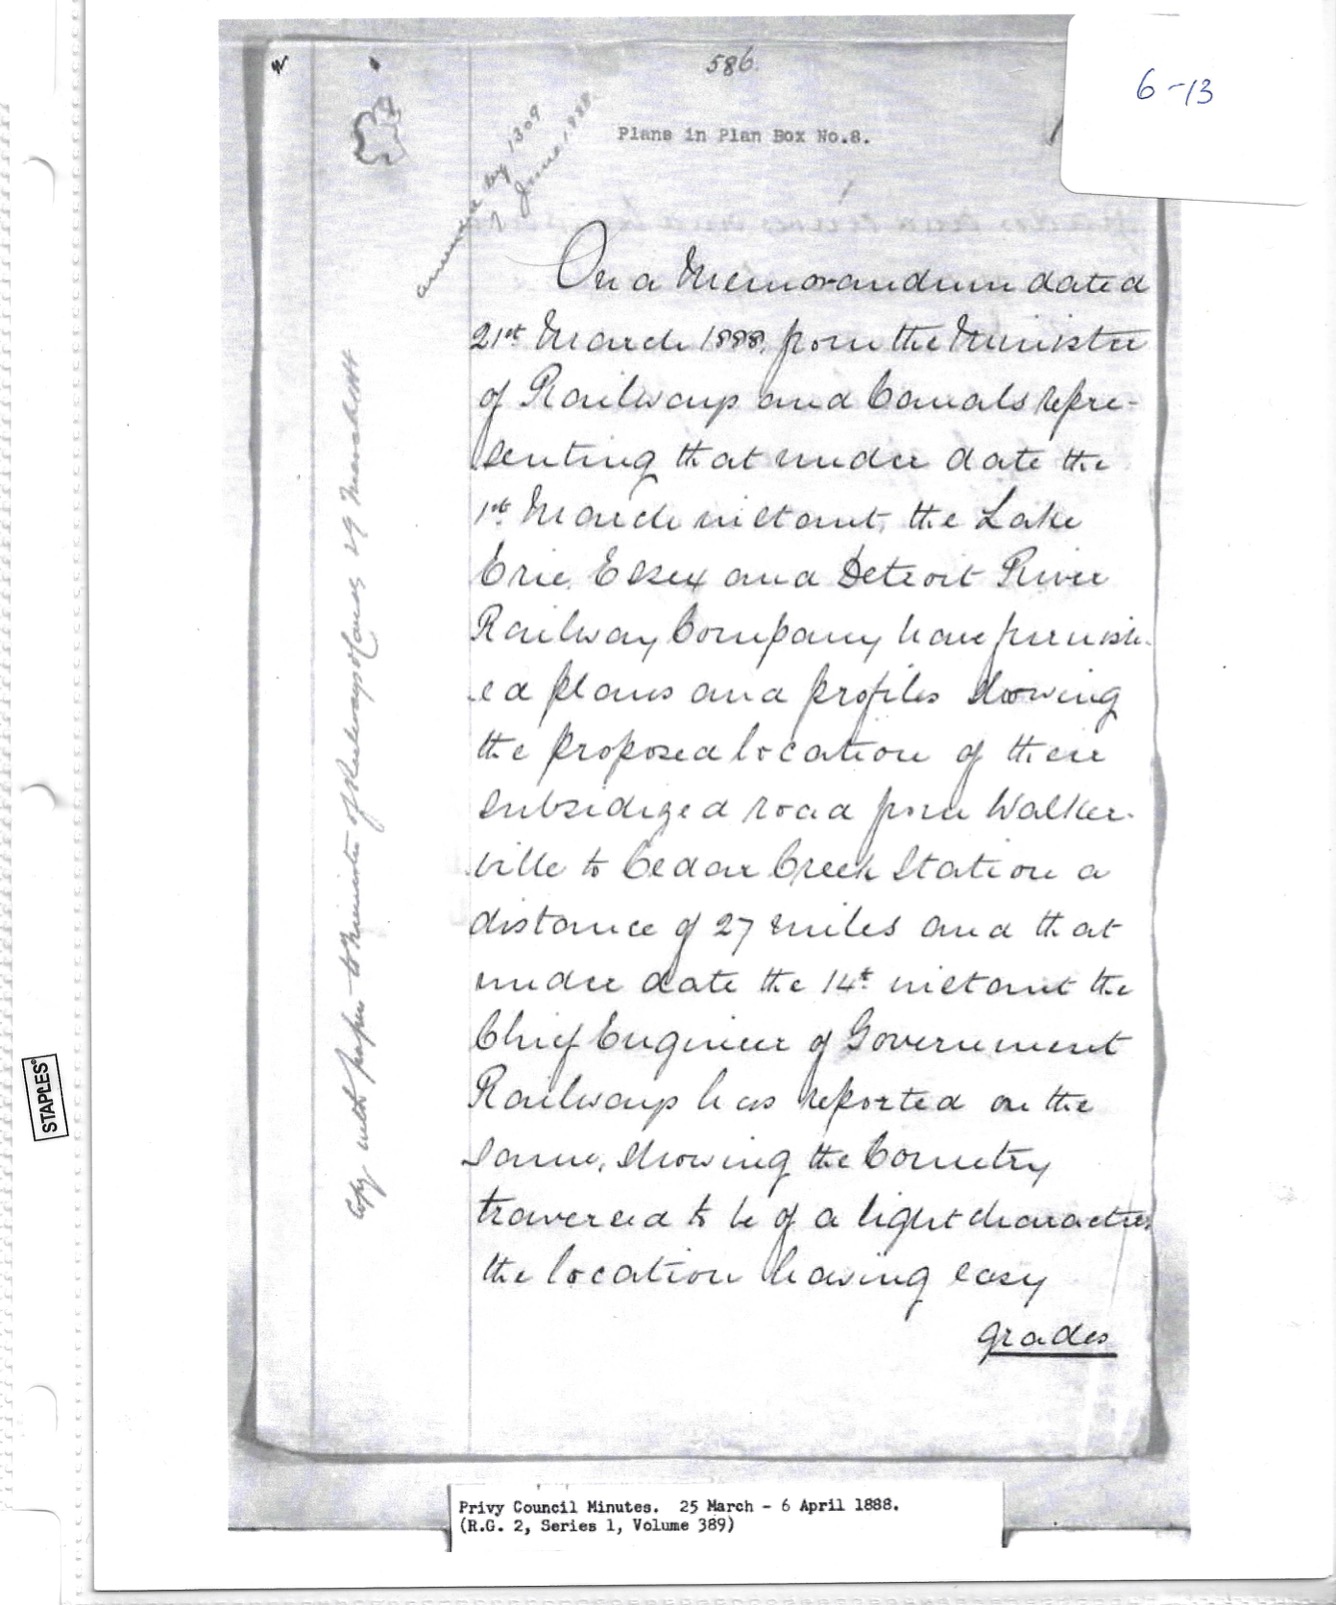 586.
6-13
Plans in Plan Box No.8.
amended by 1309
7 June 1888.
On a Memorandum dated
21st March 1888, from the Minister
of Railways and Canals repre-
senting that under date the
1st March instant, the Lake
Erie, Essex and Detroit River
Railway Company have furnish-
ed plans and profiles showing
the proposed location of their
subsidized road from Walker-
ville to Cedar Creek Station a
distance of 27 miles and that
under date the 14th instant the
Chief Engineer of Government
Railways has reported on the
same, showing the Country
traversed to be of a light character,
the location having easy
grades
Copy with papers to Minister of Railways & Canals 29 March 1888
STAPLES
Privy Council Minutes. 25 March - 6 April 1888.
(R.G. 2, Series 1, Volume 389)